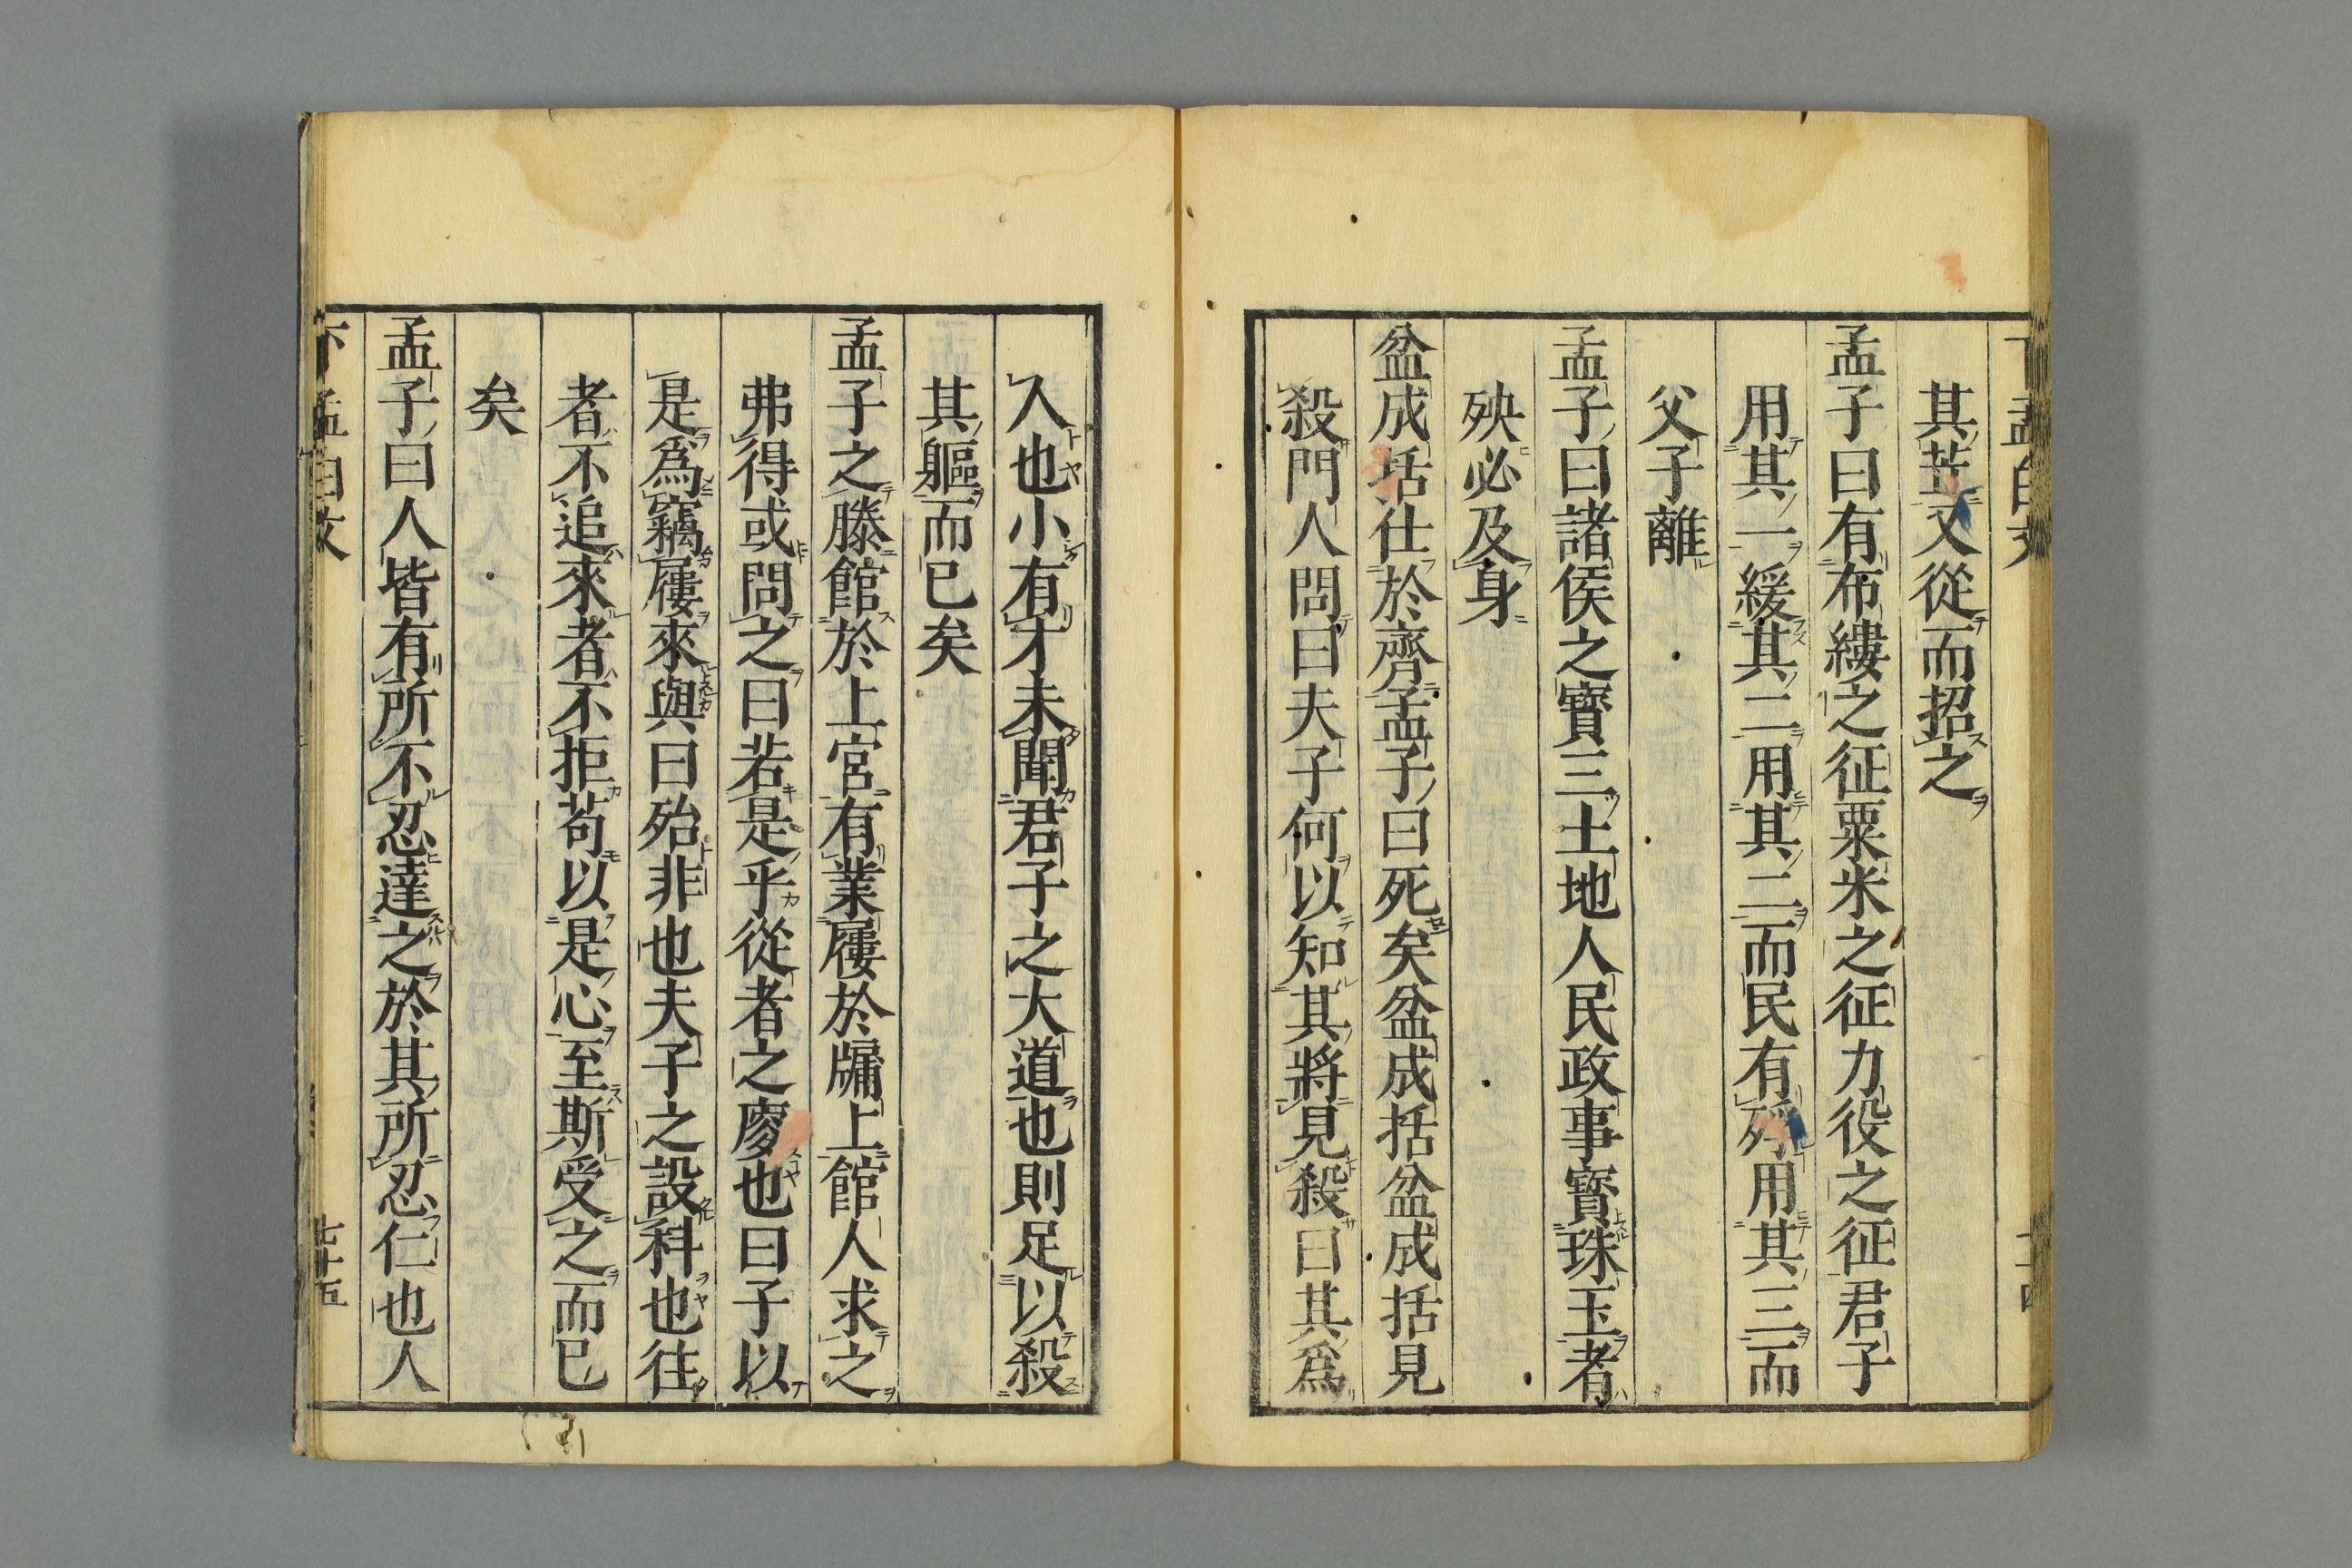 其苙又從而招之
孟子曰有布縷之征粟米之征力役之征君子
用其一緩其二用其二而民有殍用其三而
父子離
孟子曰諸侯之寶三土地人民政事寶珠玉者
殃必及身
盆成括仕於齊孟子曰死矣盆成括盆成括見
殺門人問曰夫子何以知其將見殺曰其爲
入也小有才未聞君子之大道也則足以殺
其軀而已矣
孟子之滕館於上宮有業屨於牖上館人求之
弗得或問之曰若是乎從者之廋也曰子以
是爲竊屨來與曰殆非也夫子之設科也往
者不追來者不拒苟以是心至斯受之而已
矣
孟子曰人皆有所不忍達之於其所忍仁也人
下孟白文 七十五